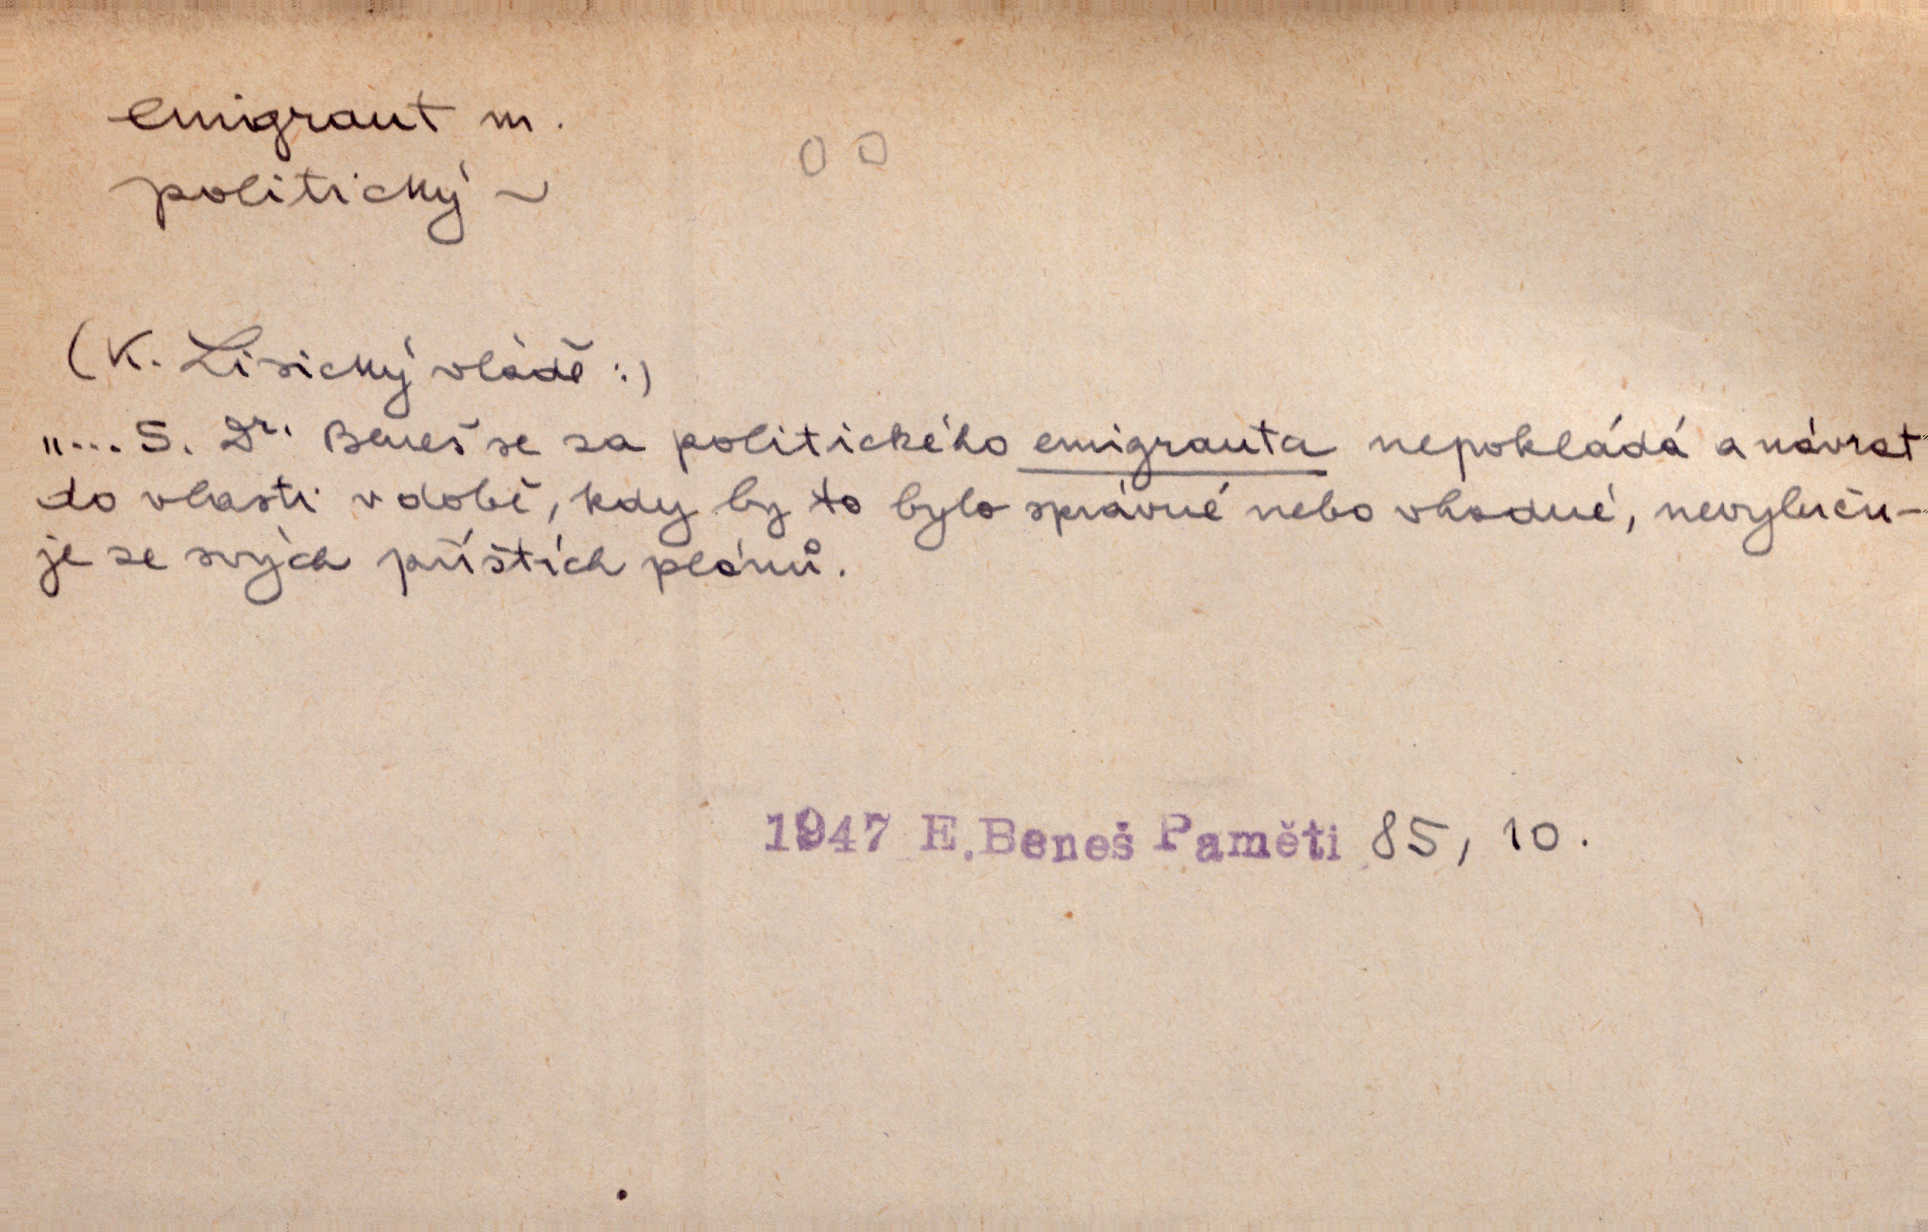 emigrant m.
politický ~
(K. Lisický vládě :)
„... 5. Dr. Beneš se za politického emigranta nepokládá a návrat
do vlasti v době, kdy by to bylo správné nebo vhodné, nevyluču-
je ze svých příštích plánů.
1947 E. Beneš Paměti 85, 10.